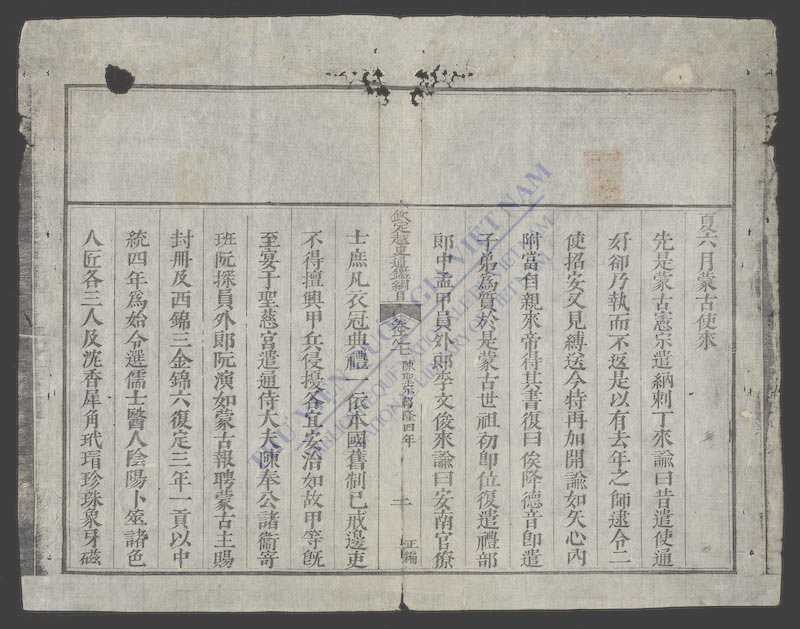 夏六月蒙古使來
先是蒙古憲宗遣納剌丁來諭曰昔遣使通
好卻乃執而不返是以有去年之師逮令二
使招安又見縛送今特再加開諭如矢心內
附當自親來帝得其書復曰俟降德音卽遣
子弟爲質於是蒙古世祖初卽位復遣禮部
郎中孟甲員外郎李文俊來諭曰安南官僚
欽定越史通鑑綱目 卷之七 陳聖宗紹隆四年 二 正編
士庶凡衣冠典禮一依本國舊制已戒邊吏
不得擅興甲兵侵擾各宜安治如故甲等旣
至宴于聖慈宮遣通侍大夫陳奉公諸衞寄
班阮探員外郎阮演如蒙古報聘蒙古主賜
封册及西錦三金錦六復定三年一貢以中
統四年爲始令選儒士醫人陰陽卜筮諸色
人匠各三人及沈香犀角玳瑁珍珠象牙磁
THƯ VIỆN QUỐC GIA VIỆT NAM
BIBLIOTHÈQUE NATIONALE DU VIETNAM
NATIONAL LIBRARY OF VIETNAM